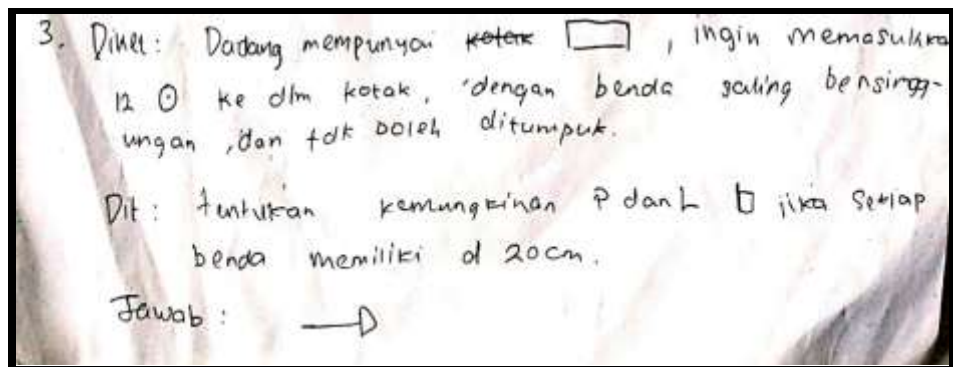 3. Diket: Dadang mempunyai kotak , ingin memasukka
12 ke dlm kotak, dengan benda saling bersingg-
ungan, dan tdk boleh ditumpuk.
Dit: tentukan kemungkinan P dan L jika setiap
benda memiliki d 20cm.
Jawab: